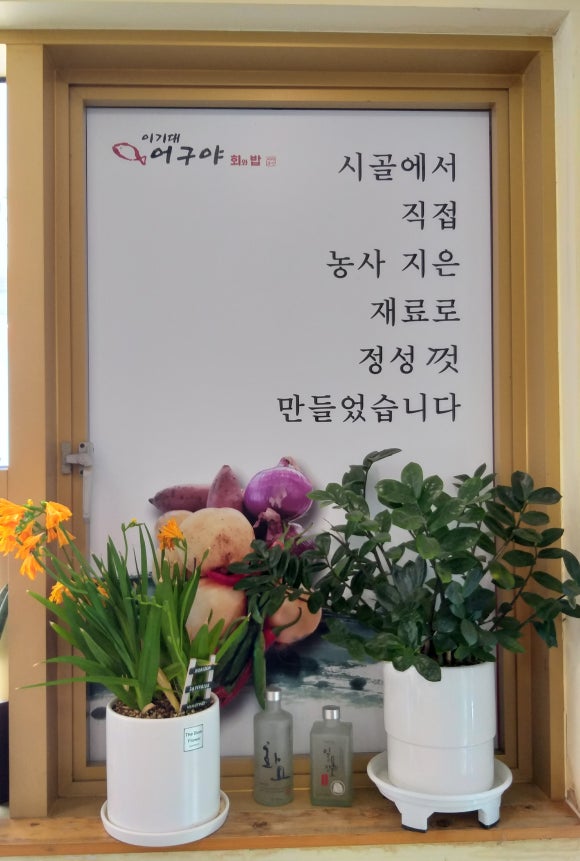 이기대
어구야 회와 밥
시골에서
직접
농사 지은
재료로
정성 껏
만들었습니다
화요